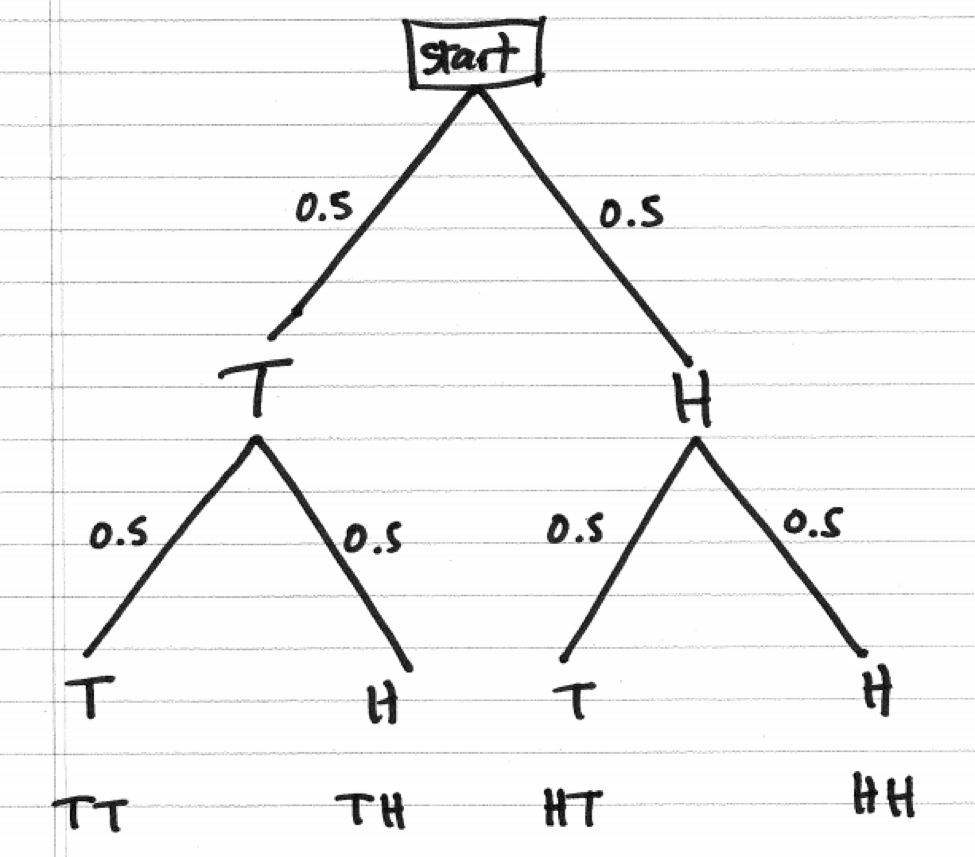 start
0.5 0.5
T H
0.5 0.5 0.5 0.5
T H T H
TT TH HT HH